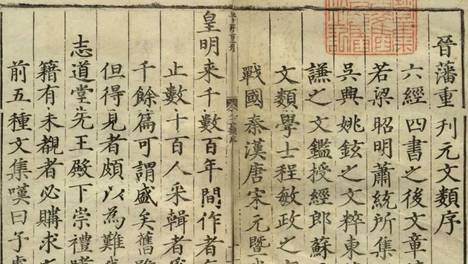 晉藩重刊元文類序
六經四書之後文章
若梁昭明蕭統所集
吳興姚鉉之文粹東
謙之文鑑授經郎蘇
文類學士程敏政之
戰國秦漢唐宋元暨
皇明來千數百年間作者
止數十百人采輯者
千餘篇可謂盛矣舊
但得見者頗以為難
志道堂先王殿下崇禮
籍有未覩者必購求
前五種文集嘆曰子